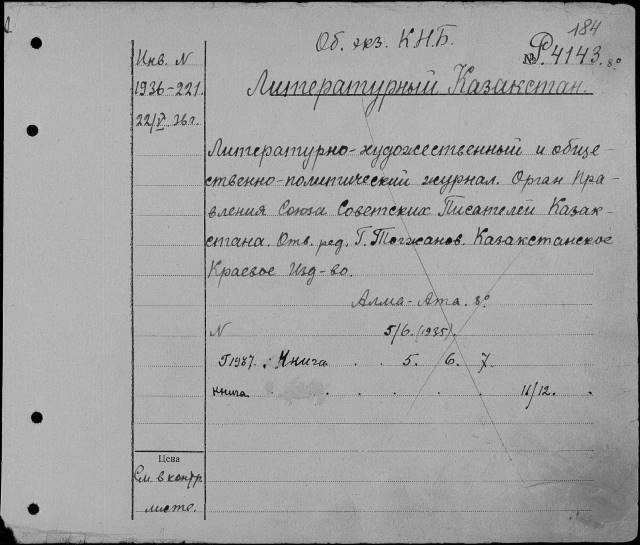 184
Об. экз. К.Н.Б.
№ Р.4143. 8°
Инв. N
1936-221.
22/V 36 г.
Литературный Казакстан.
Литературно-художественный и обще-
ственно-политический журнал. Орган Пра-
вления Союза Советских Писателей Казак-
стана. Отв. ред. Г. Тогжанов. Казакстанское
Краевое Изд-во.
Алма-Ата. 8°
N 5/6. (1935).
1937. : Книга . . 5. 6. 7.
книга . . . . . 11/12.
Цена
См. в контр.
листе.